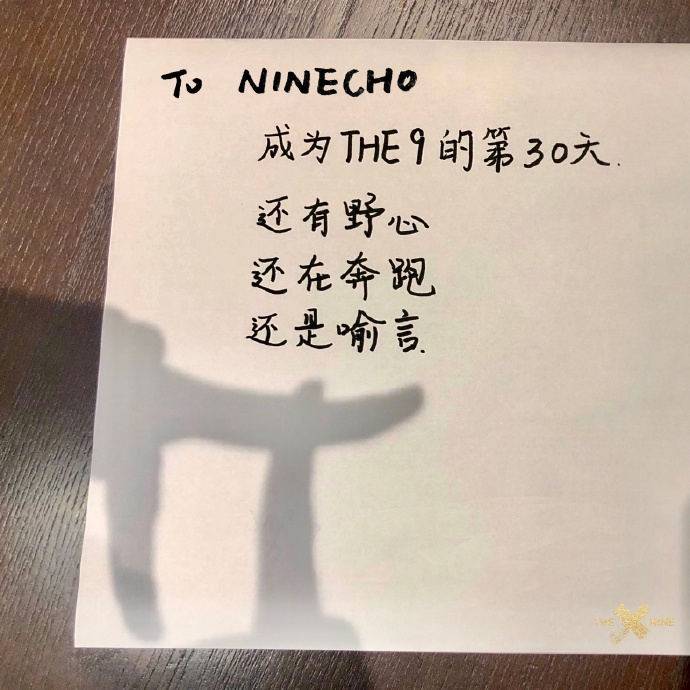 To NINECHO
成为THE9的第30天.
还有野心
还在奔跑
还是喻言.
THE NINE